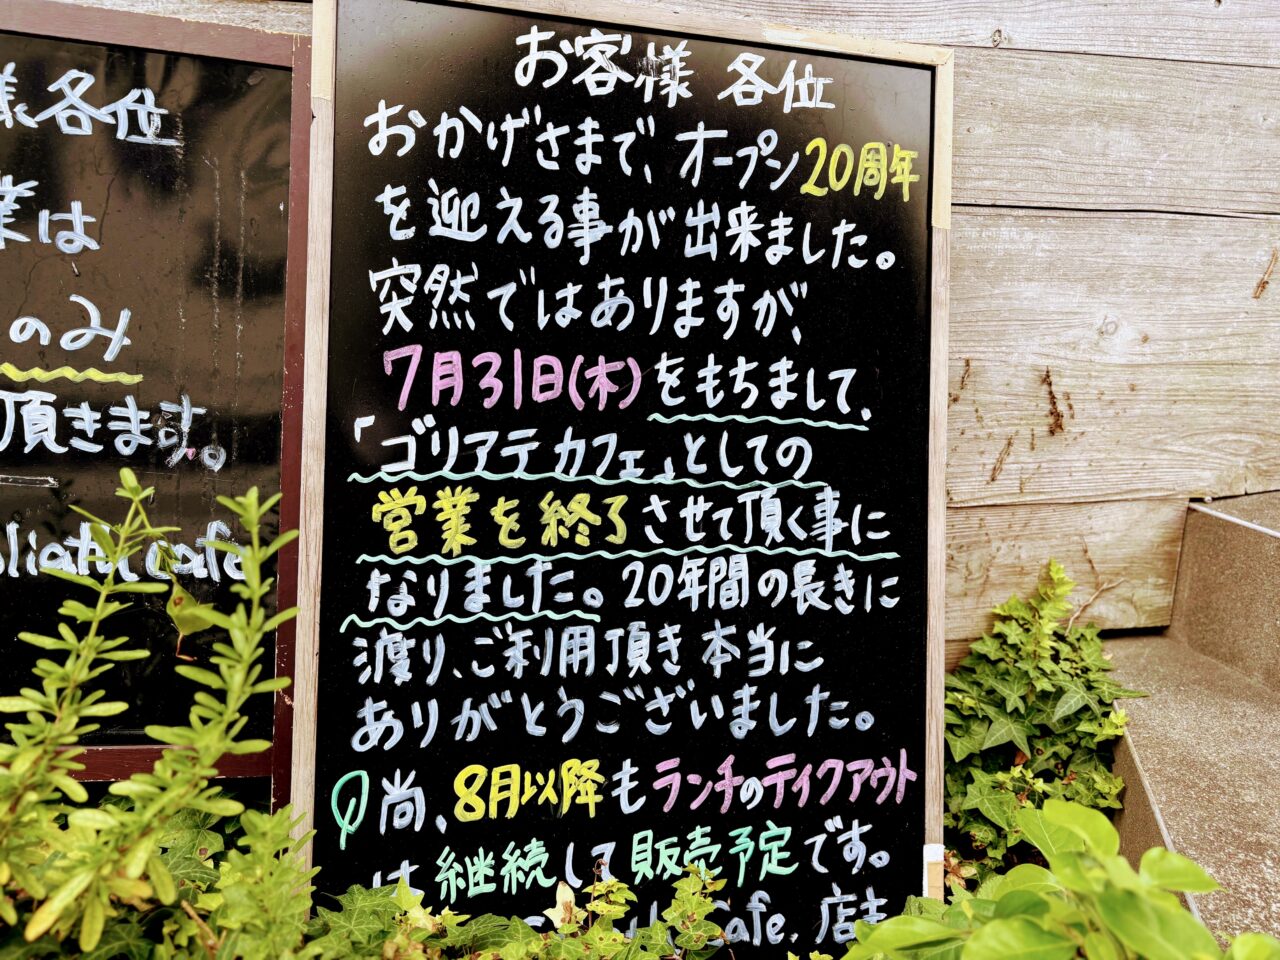 様各位
業は
のみ
頂きます。
cafe
お客様 各位
おかげさまで、オープン20周年
を迎える事が出来ました。
突然ではありますが、
7月31日(木)をもちまして、
「ゴリアテカフェ」としての
営業を終了させて頂く事に
なりました。20年間の長きに
渡り、ご利用頂き本当に
ありがとうございました。
尚、8月以降もランチのテイクアウト
は継続して販売予定です。
Cafe. 店主